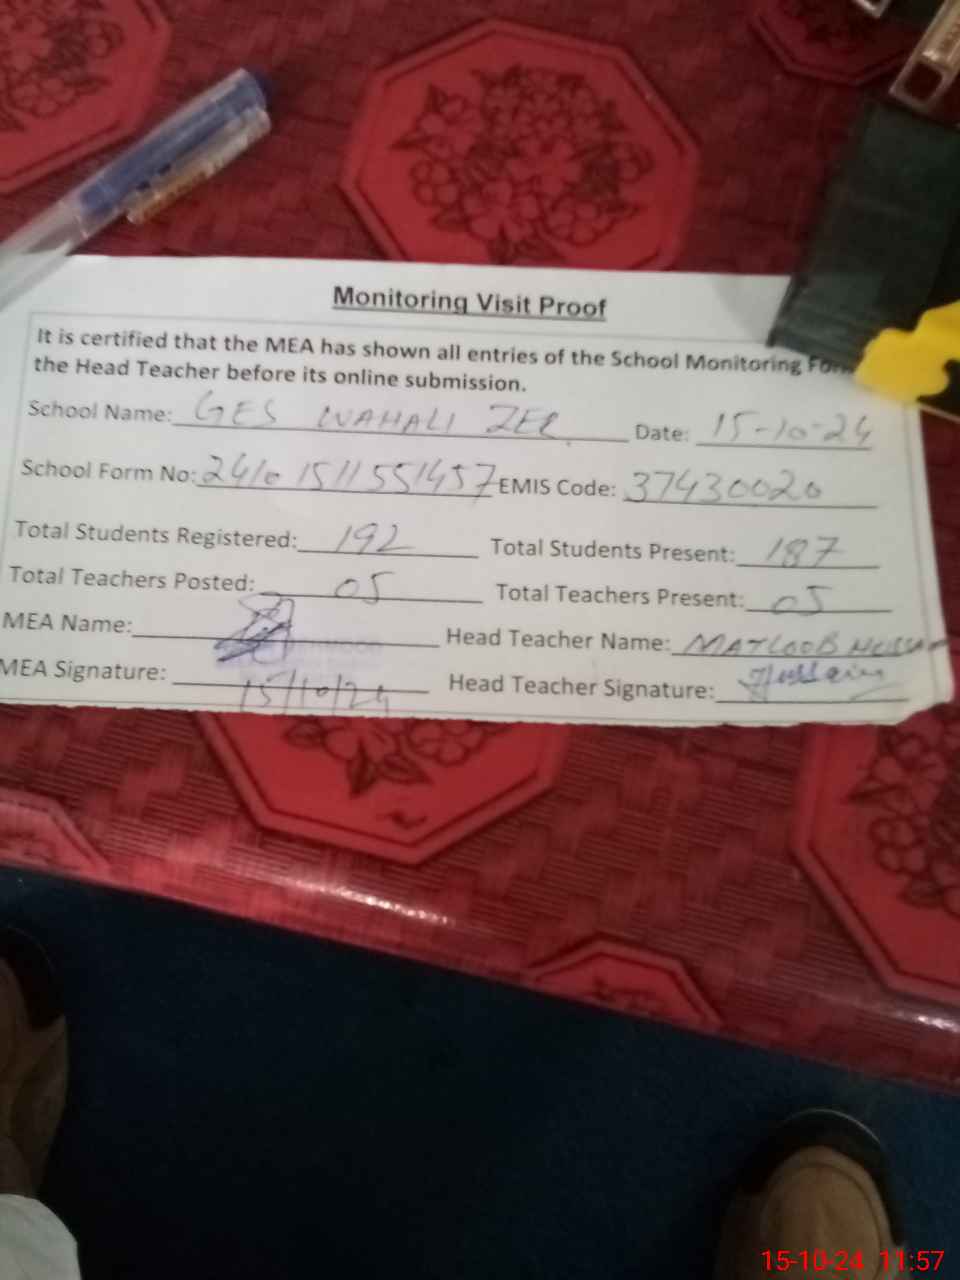 Monitoring Visit Proof
It is certified that the MEA has shown all entries of the School Monitoring
the Head Teacher before its online submission.
School Name: GES WAHALI ZER Date: 15-10-24
School Form No: 2410 1511551457 EMIS Code: 37430020
Total Students Registered: 192 Total Students Present: 187
Total Teachers Posted: 05 Total Teachers Present: 05
MEA Name: Head Teacher Name: MATLOOB HUSSAIN
MEA Signature: 15/10/24 Head Teacher Signature: Hussain
15-10-24 11:57